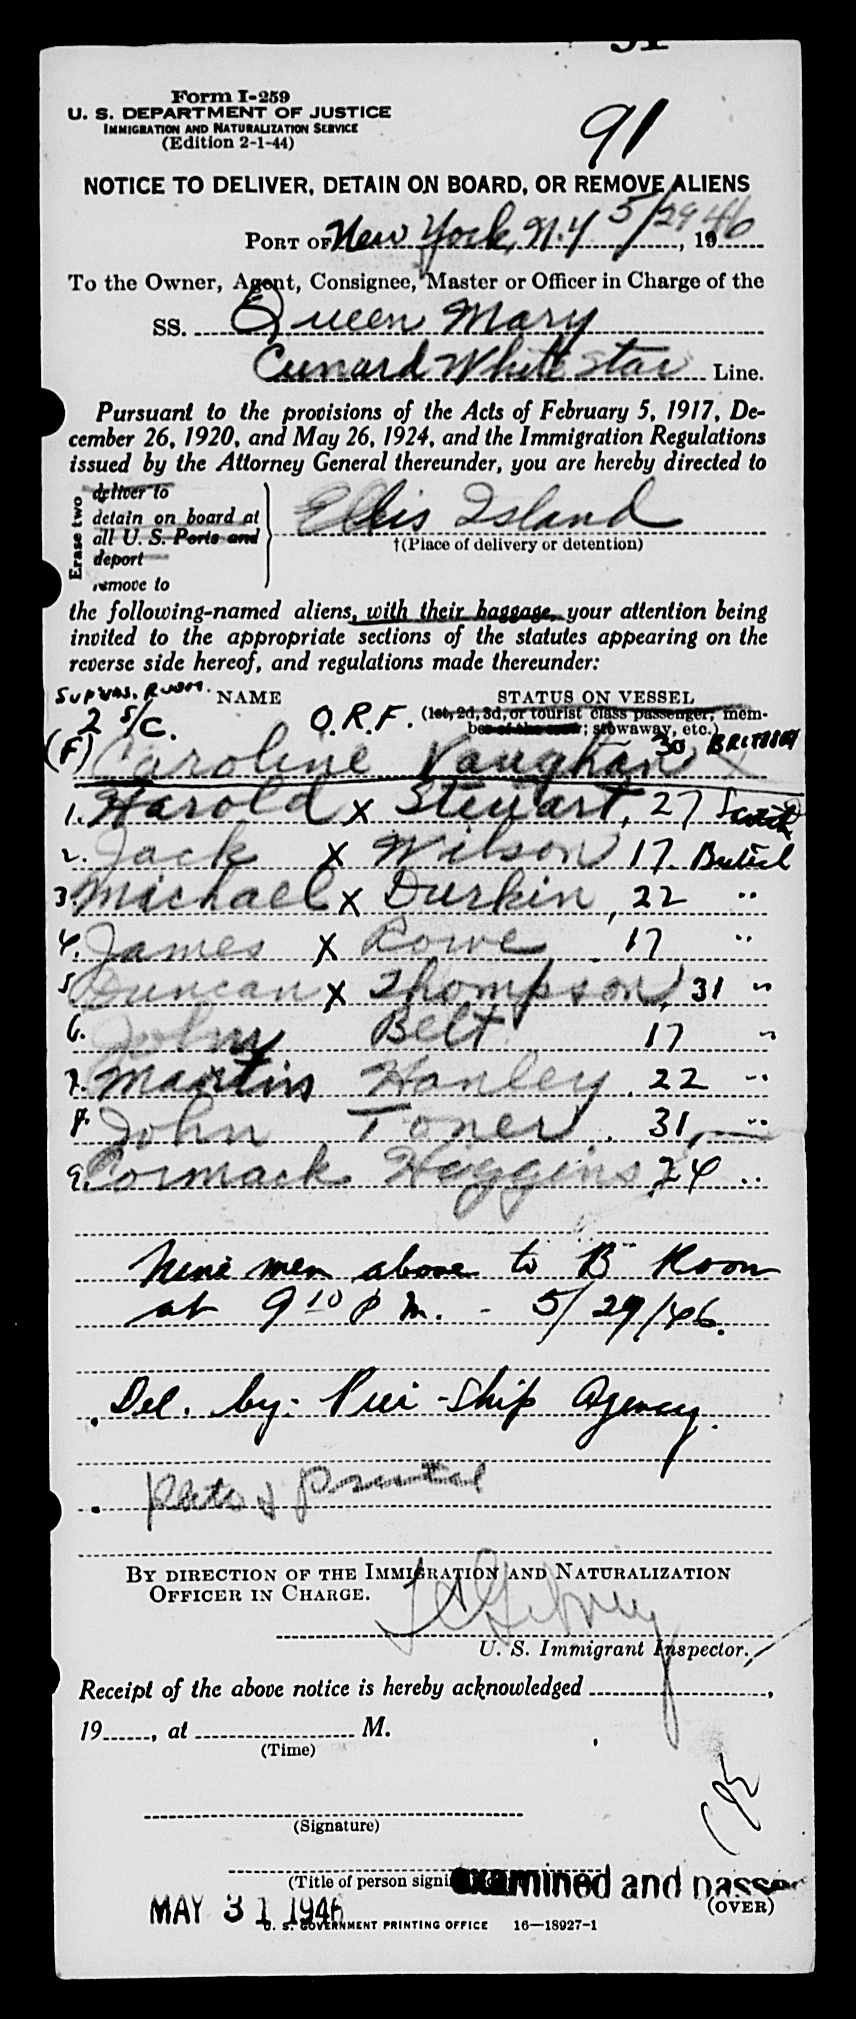 91
Form I-259
U. S. DEPARTMENT OF JUSTICE
IMMIGRATION AND NATURALIZATION SERVICE
(Edition 2-1-44)
91
NOTICE TO DELIVER, DETAIN ON BOARD, OR REMOVE ALIENS
PORT OF New York, N.Y. 5/29, 1946
To the Owner, Agent, Consignee, Master or Officer in Charge of the
SS. Queen Mary
Cunard White Star Line.
Pursuant to the provisions of the Acts of February 5, 1917, De-
cember 26, 1920, and May 26, 1924, and the Immigration Regulations
issued by the Attorney General thereunder, you are hereby directed to
Erase two
deliver to
detain on board at
all U. S. Ports and
deport
remove to
Ellis Island
†(Place of delivery or detention)
the following-named aliens, with their baggage, your attention being
invited to the appropriate sections of the statutes appearing on the
reverse side hereof, and regulations made thereunder:
Supvrs. Room. NAME STATUS ON VESSEL
2 s/c. O.R.F. (1st, 2d, 3d, or tourist class passenger; mem-
ber of the crew; stowaway, etc.)
(F) Caroline Vaughan 30 British
1. Harold x Stewart, 27 Scotch
2. Jack x Wilson 17. British
3. Michael x Durkin, 22 "
4. James x Rowe 17 "
5 Duncan x Thompson, 31 "
6. John Belt 17 "
7. Martin Hanley. 22 "
8. John Toner. 31, "
9. Cormack Higgins 24 "
Nine men above to B Room
at 9 10 P.M. - 5/29/46.
Del. by: Pier-Ship Agency.
By direction of the Immigration and Naturalization
Officer in Charge.
U. S. Immigrant Inspector.
Receipt of the above notice is hereby acknowledged ,
19 , at M.
(Time)
(Signature)
(Title of person signi
examined and passe
MAY 31 1946
(OVER)
U. S. GOVERNMENT PRINTING OFFICE 16—18927-1